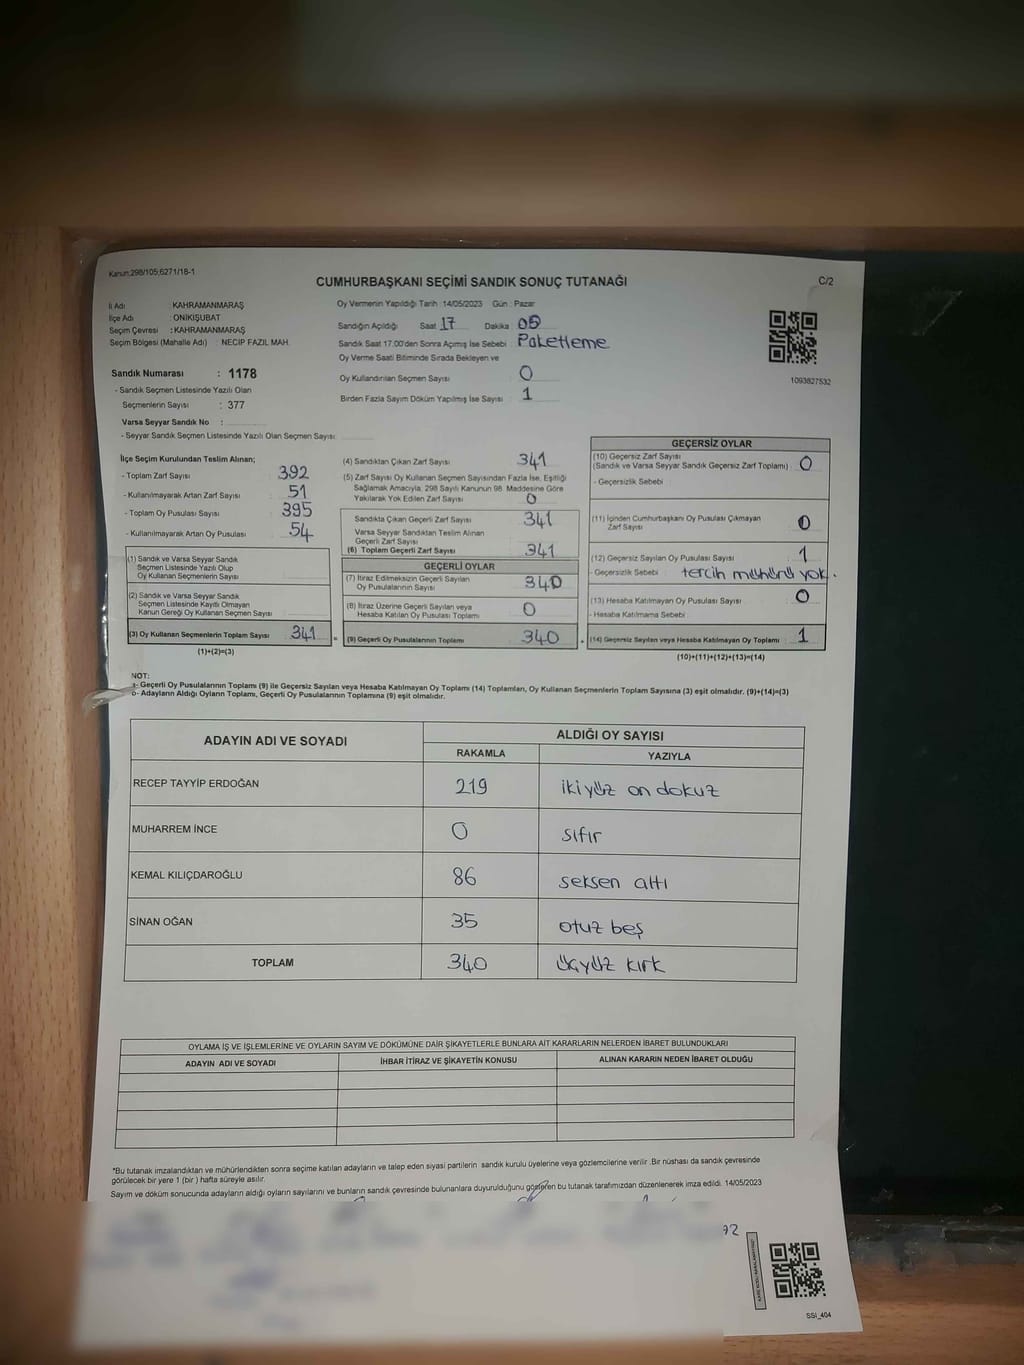 Kanun:298/105;6271/18-1
CUMHURBAŞKANI SEÇİMİ SANDIK SONUÇ TUTANAĞI
C/2
İl Adı : KAHRAMANMARAŞ
İlçe Adı : ONİKİŞUBAT
Seçim Çevresi : KAHRAMANMARAŞ
Seçim Bölgesi (Mahalle Adı) : NECİP FAZIL MAH.
Sandık Numarası : 1178
- Sandık Seçmen Listesinde Yazılı Olan
Seçmenlerin Sayısı : 377
Varsa Seyyar Sandık No :
- Seyyar Sandık Seçmen Listesinde Yazılı Olan Seçmen Sayısı:
Oy Vermenin Yapıldığı Tarih :14/05/2023 Gün : Pazar
Sandığın Açıldığı Saat 17 Dakika 05
Sandık Saat 17.00'den Sonra Açmış İse Sebebi : Paketleme
Oy Verme Saati Bitiminde Sırada Bekleyen ve
Oy Kullandırılan Seçmen Sayısı 0
Birden Fazla Sayım Döküm Yapılmış İse Sayısı 1
1093827532
İlçe Seçim Kurulundan Teslim Alınan;
- Toplam Zarf Sayısı 392
- Kullanılmayarak Artan Zarf Sayısı 51
- Toplam Oy Pusulası Sayısı 395
- Kullanılmayarak Artan Oy Pusulası 54
(1) Sandık ve Varsa Seyyar Sandık
Seçmen Listesinde Yazılı Olup
Oy Kullanan Seçmenlerin Sayısı
(2) Sandık ve Varsa Seyyar Sandık
Seçmen Listesinde Kayıtlı Olmayan
Kanun Gereği Oy Kullanan Seçmen Sayısı
(3) Oy Kullanan Seçmenlerin Toplam Sayısı 341
(1)+(2)=(3)
(4) Sandıktan Çıkan Zarf Sayısı 341
(5) Zarf Sayısı Oy Kullanan Seçmen Sayısından Fazla İse, Eşitliği
Sağlamak Amacıyla, 298 Sayılı Kanunun 98. Maddesine Göre
Yakılarak Yok Edilen Zarf Sayısı 0
Sandıkta Çıkan Geçerli Zarf Sayısı 341
Varsa Seyyar Sandıktan Teslim Alınan
Geçerli Zarf Sayısı
(6) Toplam Geçerli Zarf Sayısı 341
GEÇERLİ OYLAR
(7) İtiraz Edilmeksizin Geçerli Sayılan
Oy Pusulalarının Sayısı 340
(8) İtiraz Üzerine Geçerli Sayılan veya
Hesaba Katılan Oy Pusulası Toplamı 0
(9) Geçerli Oy Pusulalarının Toplamı 340
GEÇERSİZ OYLAR
(10) Geçersiz Zarf Sayısı
(Sandık ve Varsa Seyyar Sandık Geçersiz Zarf Toplamı) 0
- Geçersizlik Sebebi
(11) İçinden Cumhurbaşkanı Oy Pusulası Çıkmayan
Zarf Sayısı 0
(12) Geçersiz Sayılan Oy Pusulası Sayısı 1
- Geçersizlik Sebebi : tercih mühürü yok.
(13) Hesaba Katılmayan Oy Pusulası Sayısı 0
- Hesaba Katılmama Sebebi :
(14) Geçersiz Sayılan veya Hesaba Katılmayan Oy Toplamı 1
(10)+(11)+(12)+(13)=(14)
NOT:
a- Geçerli Oy Pusulalarının Toplamı (9) ile Geçersiz Sayılan veya Hesaba Katılmayan Oy Toplamı (14) Toplamları, Oy Kullanan Seçmenlerin Toplam Sayısına (3) eşit olmalıdır. (9)+(14)=(3)
b- Adayların Aldığı Oyların Toplamı, Geçerli Oy Pusulalarının Toplamına (9) eşit olmalıdır.
ADAYIN ADI VE SOYADI ALDIĞI OY SAYISI
RAKAMLA YAZIYLA
RECEP TAYYİP ERDOĞAN 219 iki yüz on dokuz
MUHARREM İNCE 0 sıfır
KEMAL KILIÇDAROĞLU 86 seksen altı
SİNAN OĞAN 35 otuz beş
TOPLAM 340 üçyüz kırk
OYLAMA İŞ VE İŞLEMLERİNE VE OYLARIN SAYIM VE DÖKÜMÜNE DAİR ŞİKAYETLERLE BUNLARA AİT KARARLARIN NELERDEN İBARET BULUNDUKLARI
ADAYIN ADI VE SOYADI İHBAR İTİRAZ VE ŞİKAYETİN KONUSU ALINAN KARARIN NEDEN İBARET OLDUĞU
*Bu tutanak imzalandıktan ve mühürlendikten sonra seçime katılan adayların ve talep eden siyasi partilerin sandık kurulu üyelerine veya gözlemcilerine verilir .Bir nüshası da sandık çevresinde
görülecek bir yere 1 (bir ) hafta süreyle asılır.
Sayım ve döküm sonucunda adayların aldığı oyların sayılarını ve bunların sandık çevresinde bulunanlara duyurulduğunu gösteren bu tutanak tarafımızdan düzenlenerek imza edildi. 14/05/2023
SSİ_404